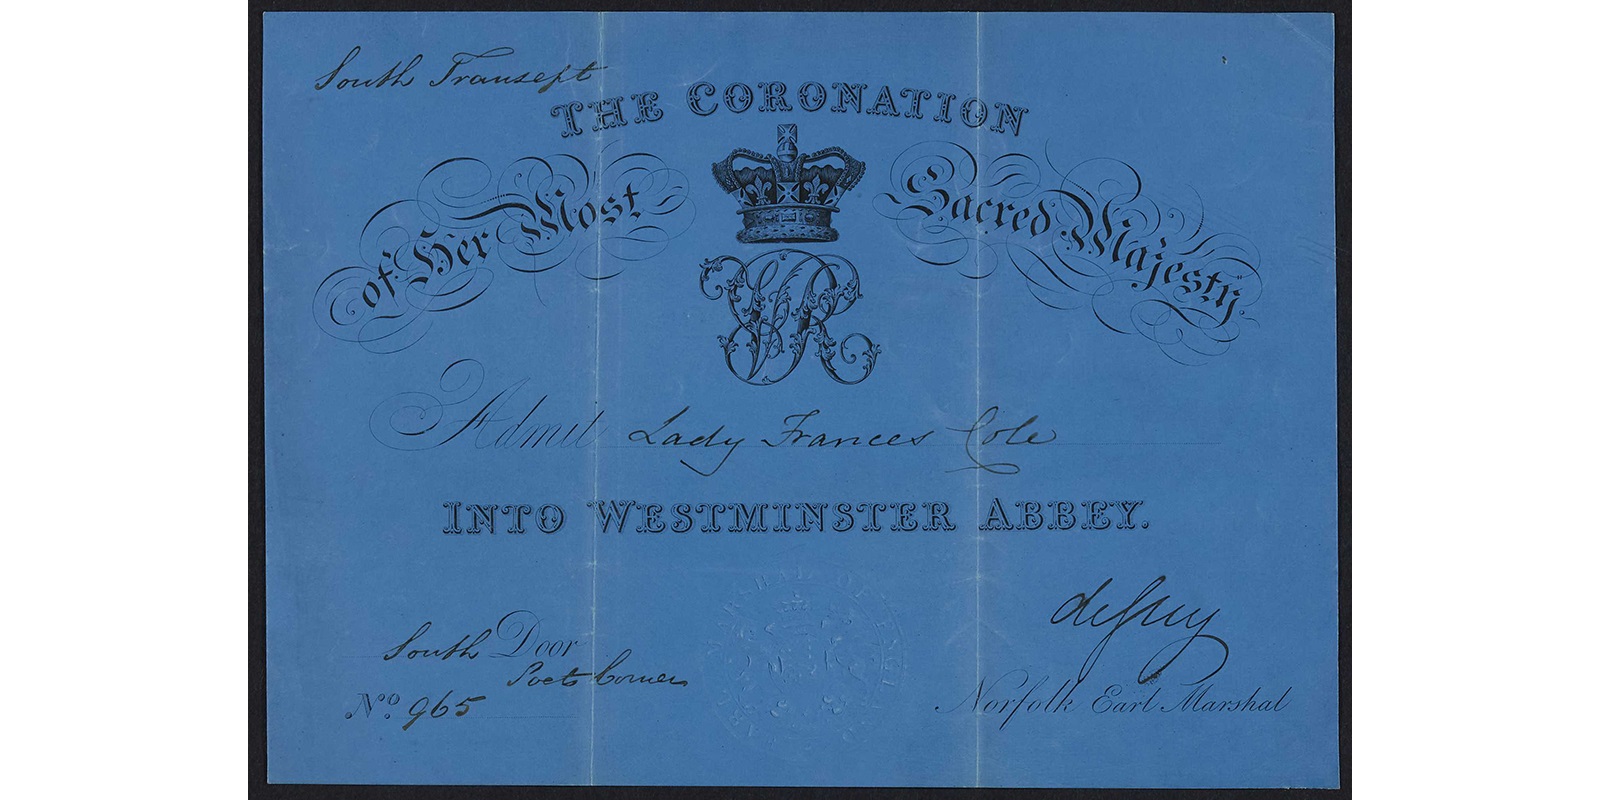 South Transept
THE CORONATION
of Her Most Sacred Majesty.
VR
Admit Lady Frances Cole
INTO WESTMINSTER ABBEY.
South Door
Poets Corner
No. 965
Norfolk Earl Marshal